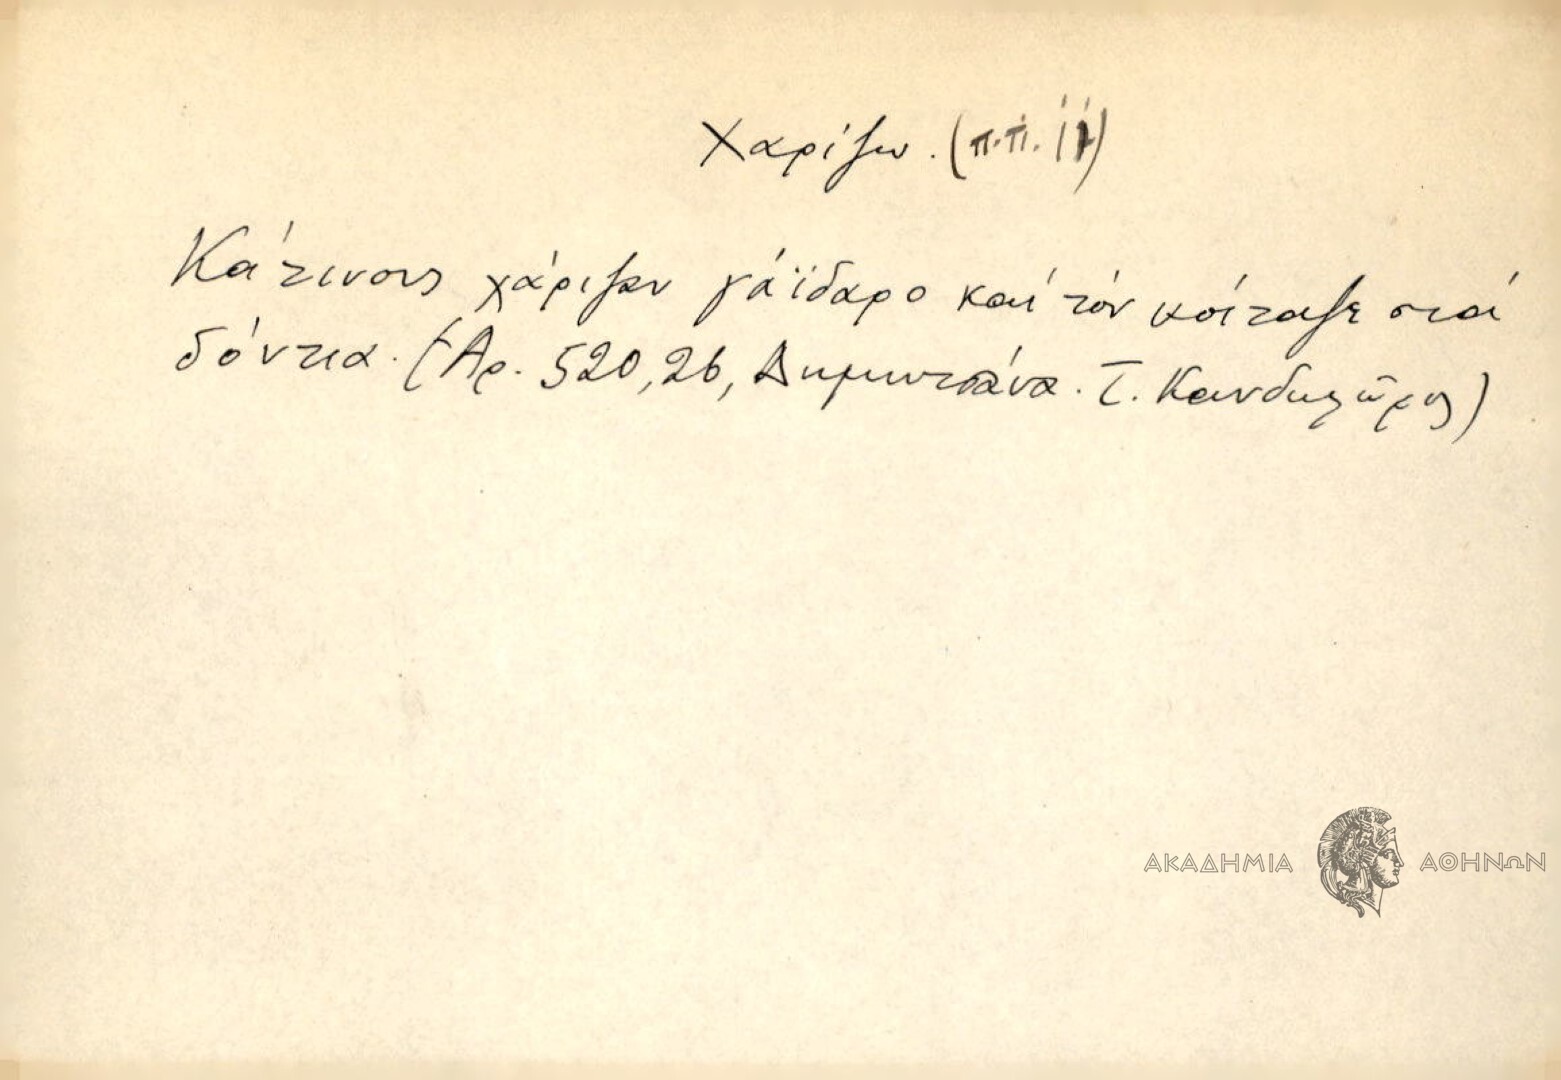 Χαρίζω. (π.π. 11)
Κάτινους χάριζαν γάϊδαρο καί τόν κοίταζε στά
δόντια. (Ἀρ. 520, 26, Δημητσάνα. Τ. Κανδηλῶρος)
ΑΚΑΔΗΜΙΑ ΑΘΗΝΩΝ